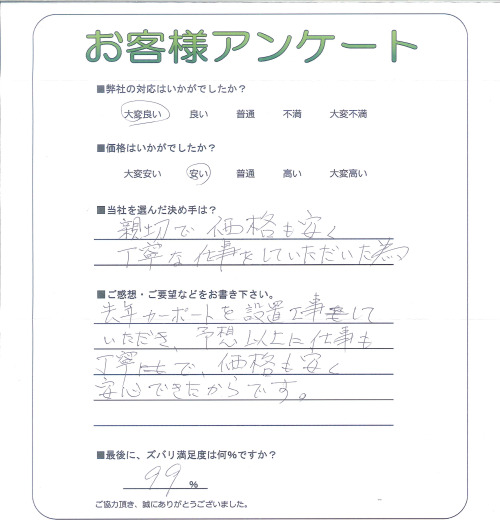 お客様アンケート
■弊社の対応はいかがでしたか？
大変良い 良い 普通 不満 大変不満
■価格はいかがでしたか？
大変安い 安い 普通 高い 大変高い
■当社を選んだ決め手は？
親切で価格も安く
丁寧な仕事をしていただいた為
■ご感想・ご要望などをお書き下さい。
去年カーポートを設置工事をして
いただき、予想以上に仕事も
丁寧で、価格も安く
安心できたからです。
■最後に、ズバリ満足度は何%ですか？
99%
ご協力頂き、誠にありがとうございました。